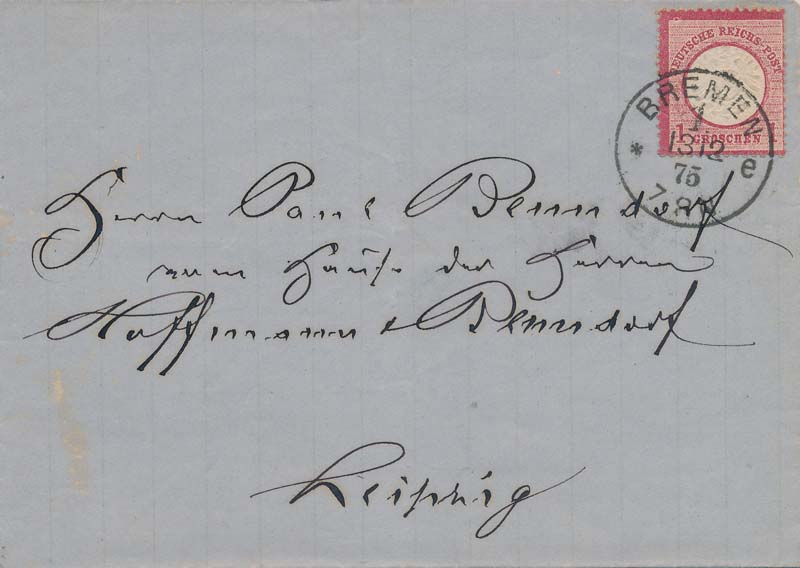 DEUTSCHE REICHS-POST
1 GROSCHEN 1
BREMEN
1
13 12
75
7-8N
* e
Herrn Paul Benndorf
Hause der Herren
Hoffmann & Benndorf
Leipzig